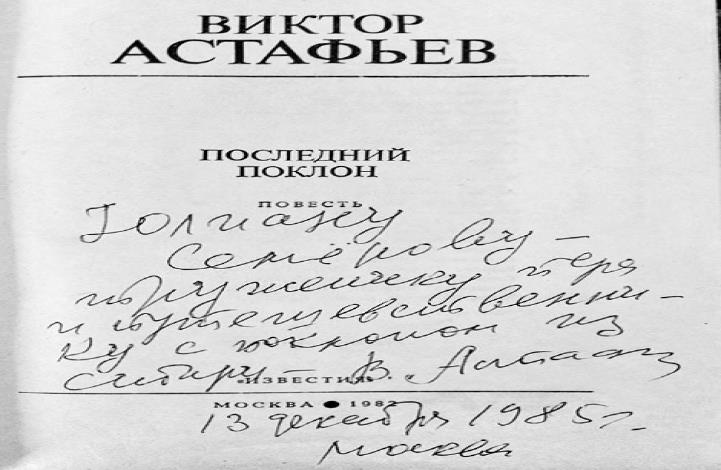 ВИКТОР
АСТАФЬЕВ
ПОСЛЕДНИЙ
ПОКЛОН
ПОВЕСТЬ
Юлиану
Семёнову –
труженику пера
и путешественни-
ку с поклоном из
Сибири – В. Астафьев
«ИЗВЕСТИЯ»
МОСКВА ● 1982
13 декабря 1985 г.
Москва